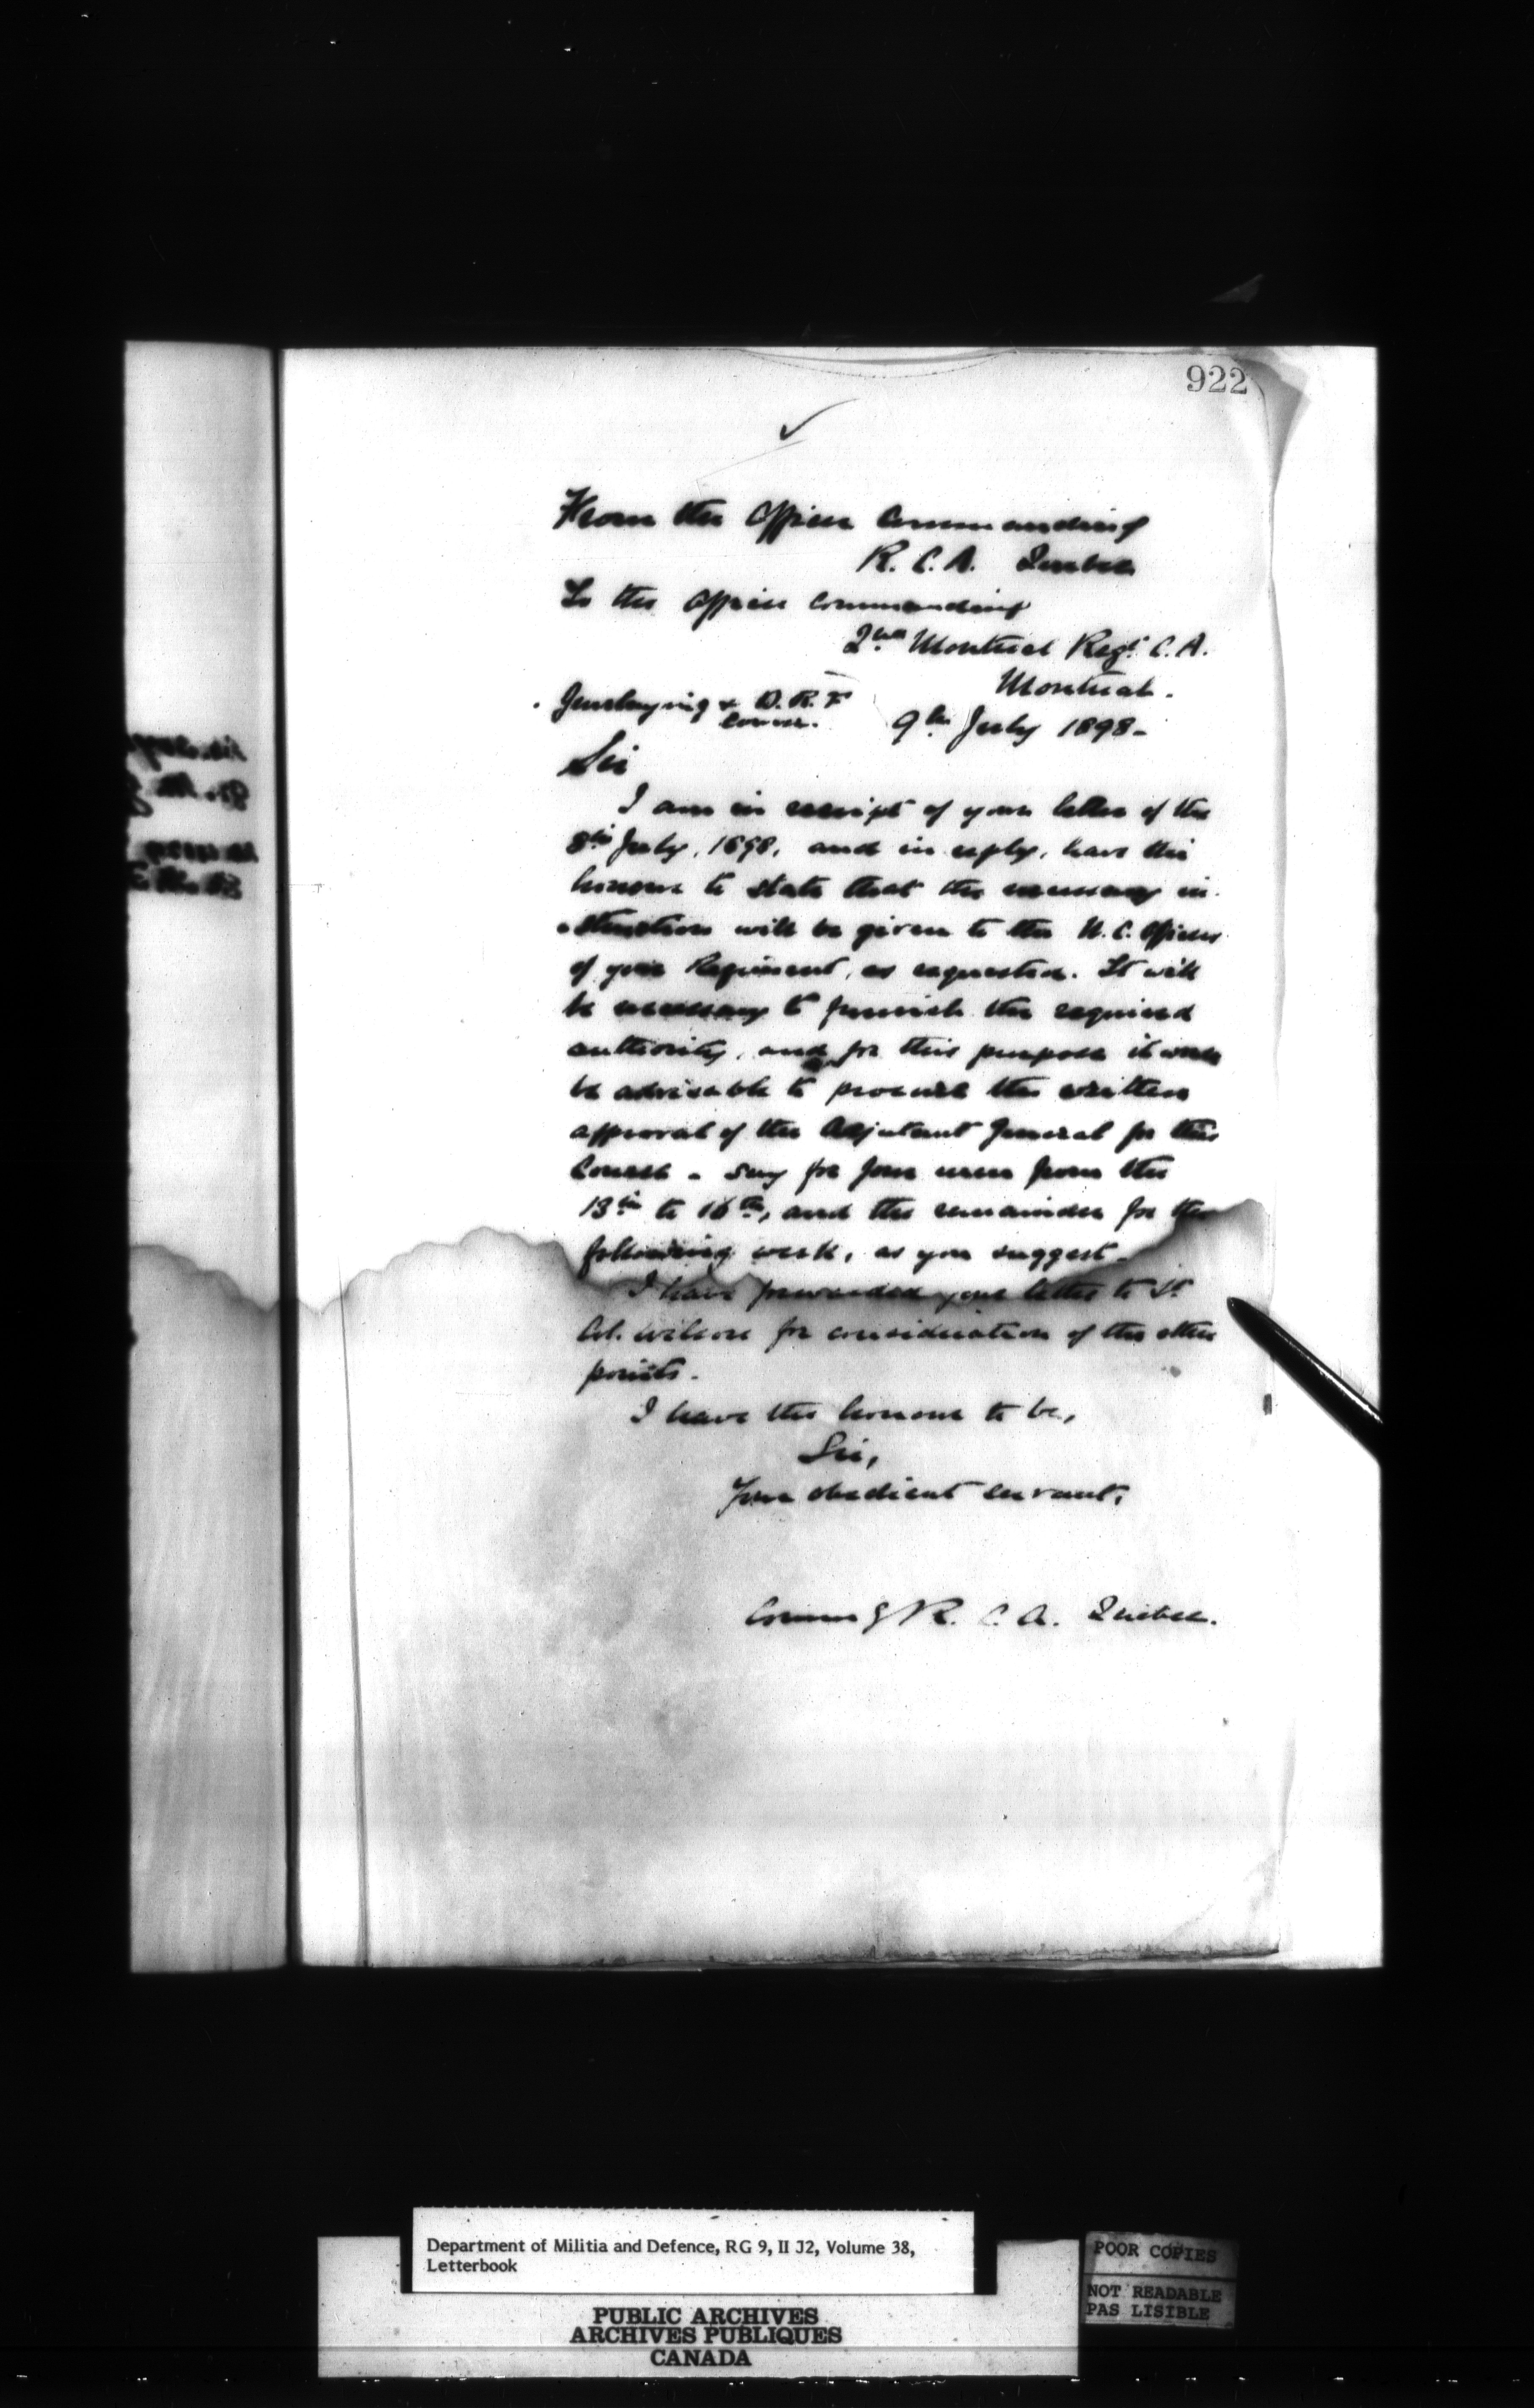 922
From the Officer Commanding
R. C. A. Quebec
To the Officer Commanding
2nd Montreal Regt. C. A.
Montreal.
Gunlaying & D. R. F.
Course.
9th July 1898-
Sir
I am in receipt of your letter of the
8th July, 1898, and in reply, have the
honour to state that the necessary in-
struction will be given to the N. C. Officers
of your Regiment, as requested. It will
be necessary to furnish the required
authority, and for this purpose it would
be advisable to procure the written
approval of the Adjutant General for this
Course - say for four men from the
13th to 16th, and the remainder for the
following week, as you suggest-
I have forwarded your letter to Lt
Col. Wilson for consideration of the other
points.
I have the honour to be,
Sir,
Your obedient servant,
Commg R. C. A. Quebec.
Department of Militia and Defence, RG 9, II J2, Volume 38,
Letterbook
PUBLIC ARCHIVES
ARCHIVES PUBLIQUES
CANADA
POOR COPIES
NOT READABLE
PAS LISIBLE